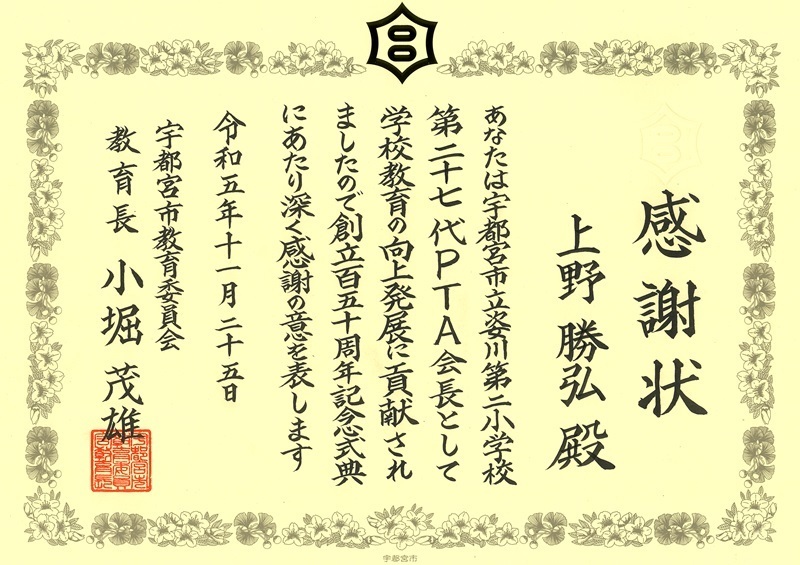 感謝状
上野勝弘殿
あなたは宇都宮市立姿川第二小学校
第二十七代PTA会長として
学校教育の向上発展に貢献され
ましたので創立百五十周年記念式典
にあたり深く感謝の意を表します
令和五年十一月二十五日
宇都宮市教育委員会
教育長 小堀茂雄
宇都宮市